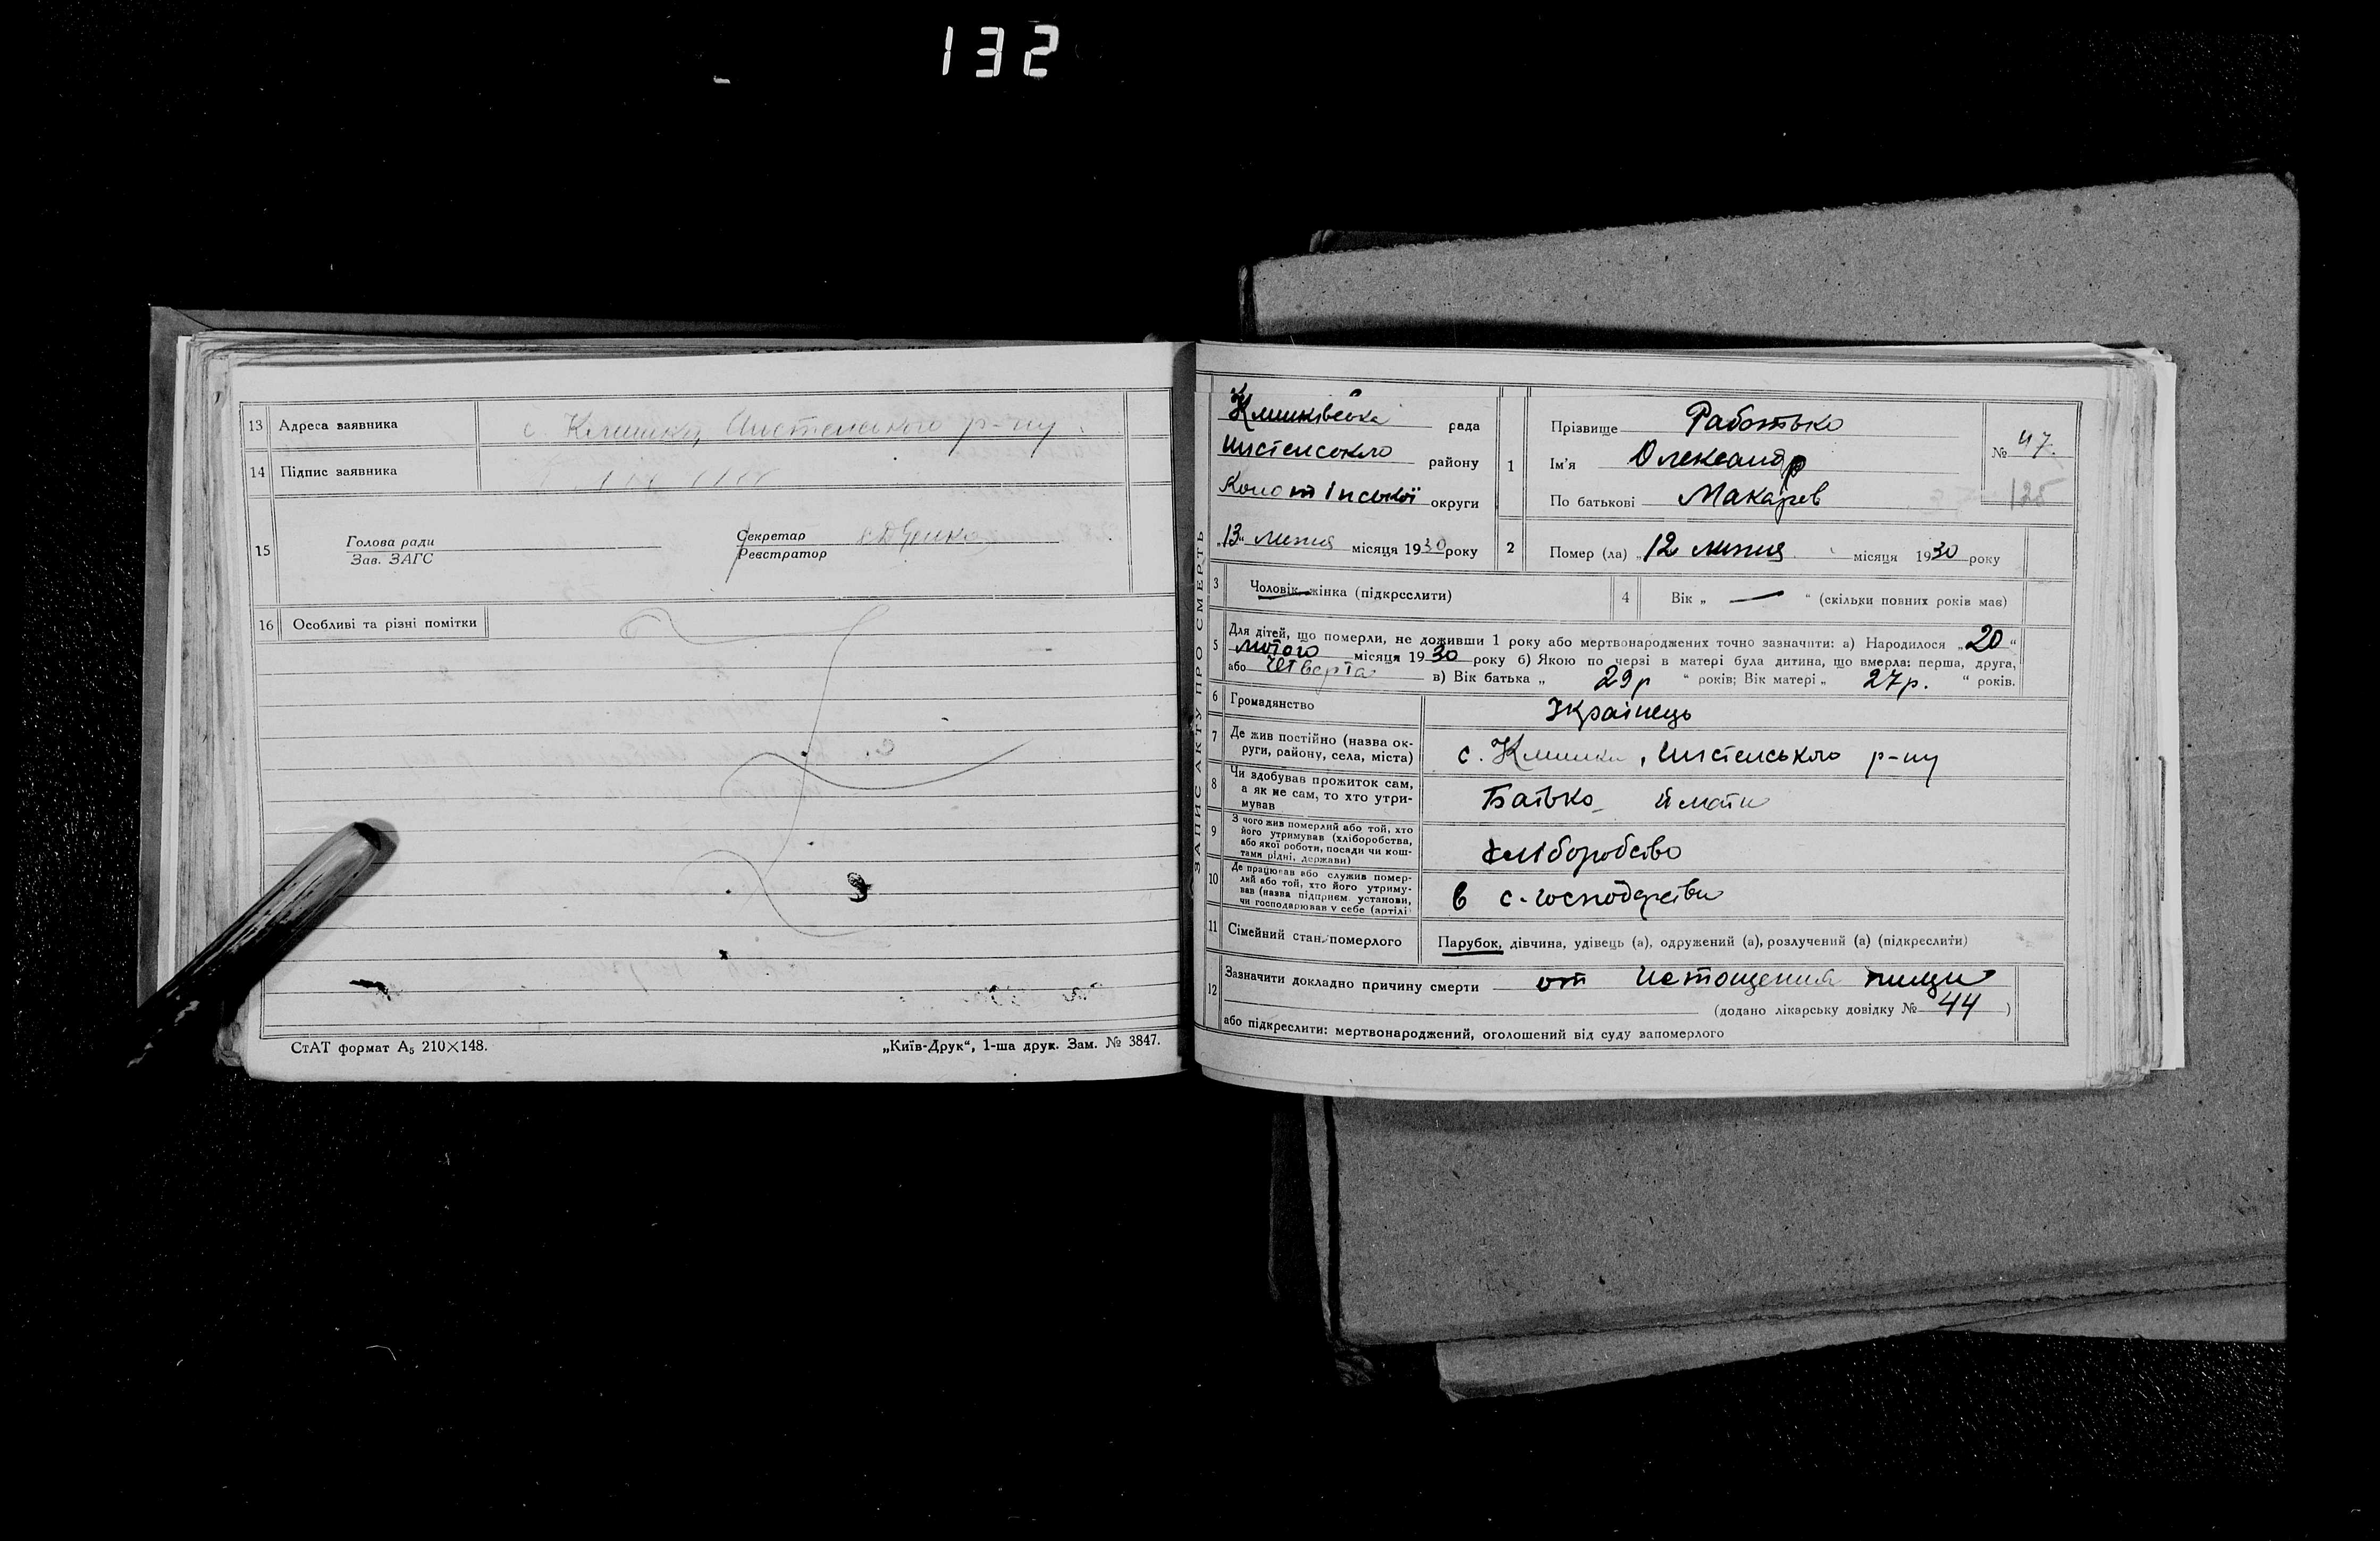 132
13 Адреса заявника с. Клишки, Шистенського р-ну.
14 Підпис заявника
15 Голова ради Секретар
Зав. ЗАГС Реєстратор
16 Особливі та різні помітки
СтАТ формат А₅ 210×148. „Київ-Друк“, 1-ша друк. Зам. № 3847.
ЗАПИС АКТУ ПРО СМЕРТЬ
Клишківська рада
району
Конотіпської округи
„13“ липня місяця 1930 року
1 Прізвище Работько
Ім’я Олександр
По батькові Макарев
№ 47.
125
2 Помер (ла) „12 липня місяця 1930 року
3 Чоловік, жінка (підкреслити) 4 Вік „ — “ (скільки повних років мав)
5 Для дітей, що померли, не доживши 1 року або мертвонароджених точно зазначити: а) Народилося „20“
лютого місяця 1930 року б) Якою по черзі в матері була дитина, що вмерла: перша, друга,
або четверта в) Вік батька „ 29 р “ років; Вік матері „ 27 р. “ років.
6 Громадянство Українець
7 Де жив постійно (назва ок-
руги, району, села, міста) с. Клишки, Шістенського р-ну
8 Чи здобував прожиток сам,
а як не сам, то хто утри-
мував Батько й мати
9 З чого жив померлий або той, хто
його утримував (хліборобства,
або якої роботи, посади чи кош-
тами рідні, держави) хліборобство
10 Де працював або служив помер-
лий або той, хто його утриму-
вав (назва підприєм. установи,
чи господарював у себе (артілі) в с-господарстви
11 Сімейний стан померлого Парубок, дівчина, удівець (а), одружений (а), розлучений (а) (підкреслити)
12 Зазначити докладно причину смерти от истощения пищи
(додано лікарську довідку № 44 )
або підкреслити: мертвонароджений, оголошений від суду запомерлого